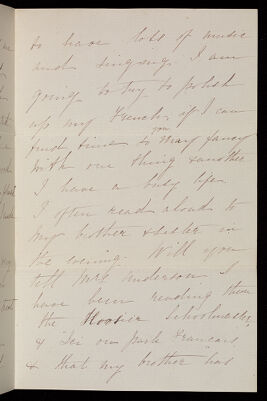 to have lots of music
and singing. I am
going to try to polish
up my French, if I can
find time so you may fancy
with one thing & another
I have a busy life.
I often read aloud to
my brother & sister in
the evening. Will you
tell Mrs Anderson I
have been reading them
the Hoosier Schoolmaster,
& Ici on parle Francais,
& that my brother has